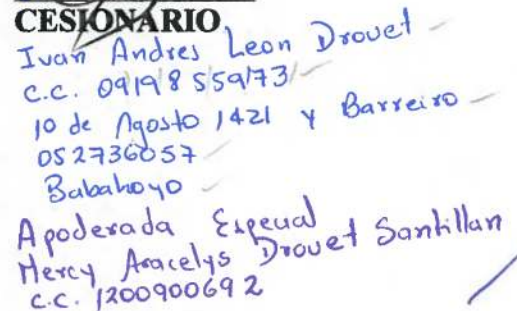 CESIONARIO
Ivan Andres Leon Drouet
C.C. 0919855973
10 de Agosto 1421 y Barreiro
052736057
Babahoyo
Apoderada Especial
Mercy Aracelys Drouet Santillan
C.C. 1200900692